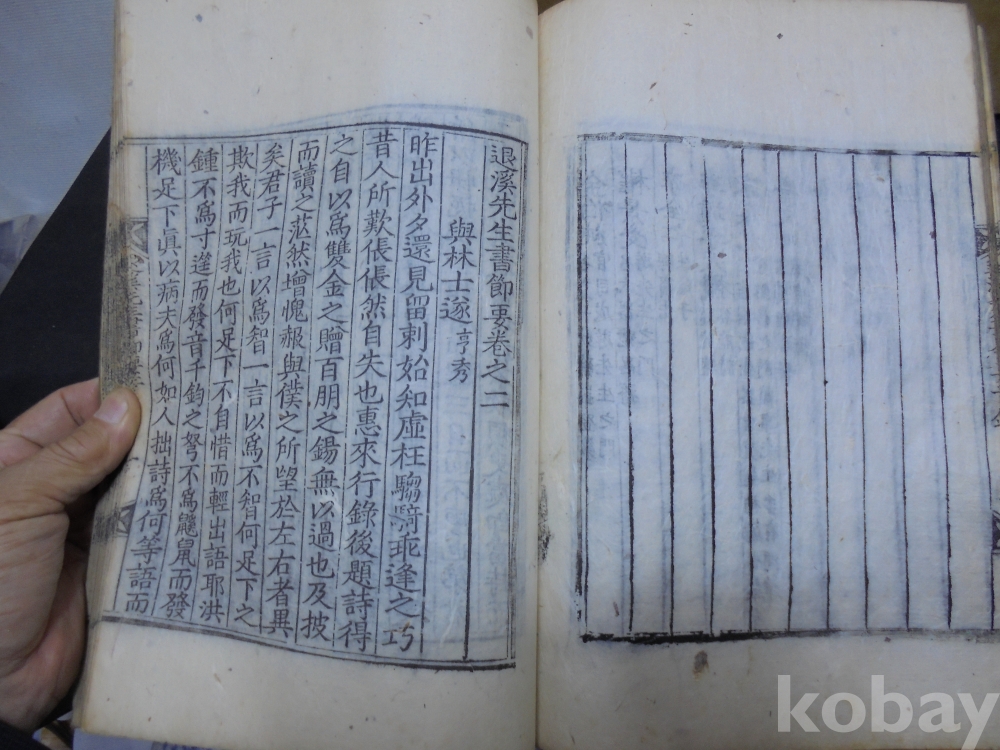 退溪先生書節要卷之二
與林士遂亨秀
昨出外夕還見留刺始知虛枉騶騎乖逢之巧
昔人所歎倀倀然自失也惠來行錄後題詩得
之自以爲雙金之贈百朋之錫無以過也及披
而讀之茫然增愧赧與僕之所望於左右者異
矣君子一言以爲智一言以爲不智何足下之
欺我而玩我也何足下不自惜而輕出語耶洪
鍾不爲寸莛而發音千鈞之弩不爲鼷鼠而發
機足下眞以病夫爲何如人拙詩爲何等語而
kobay